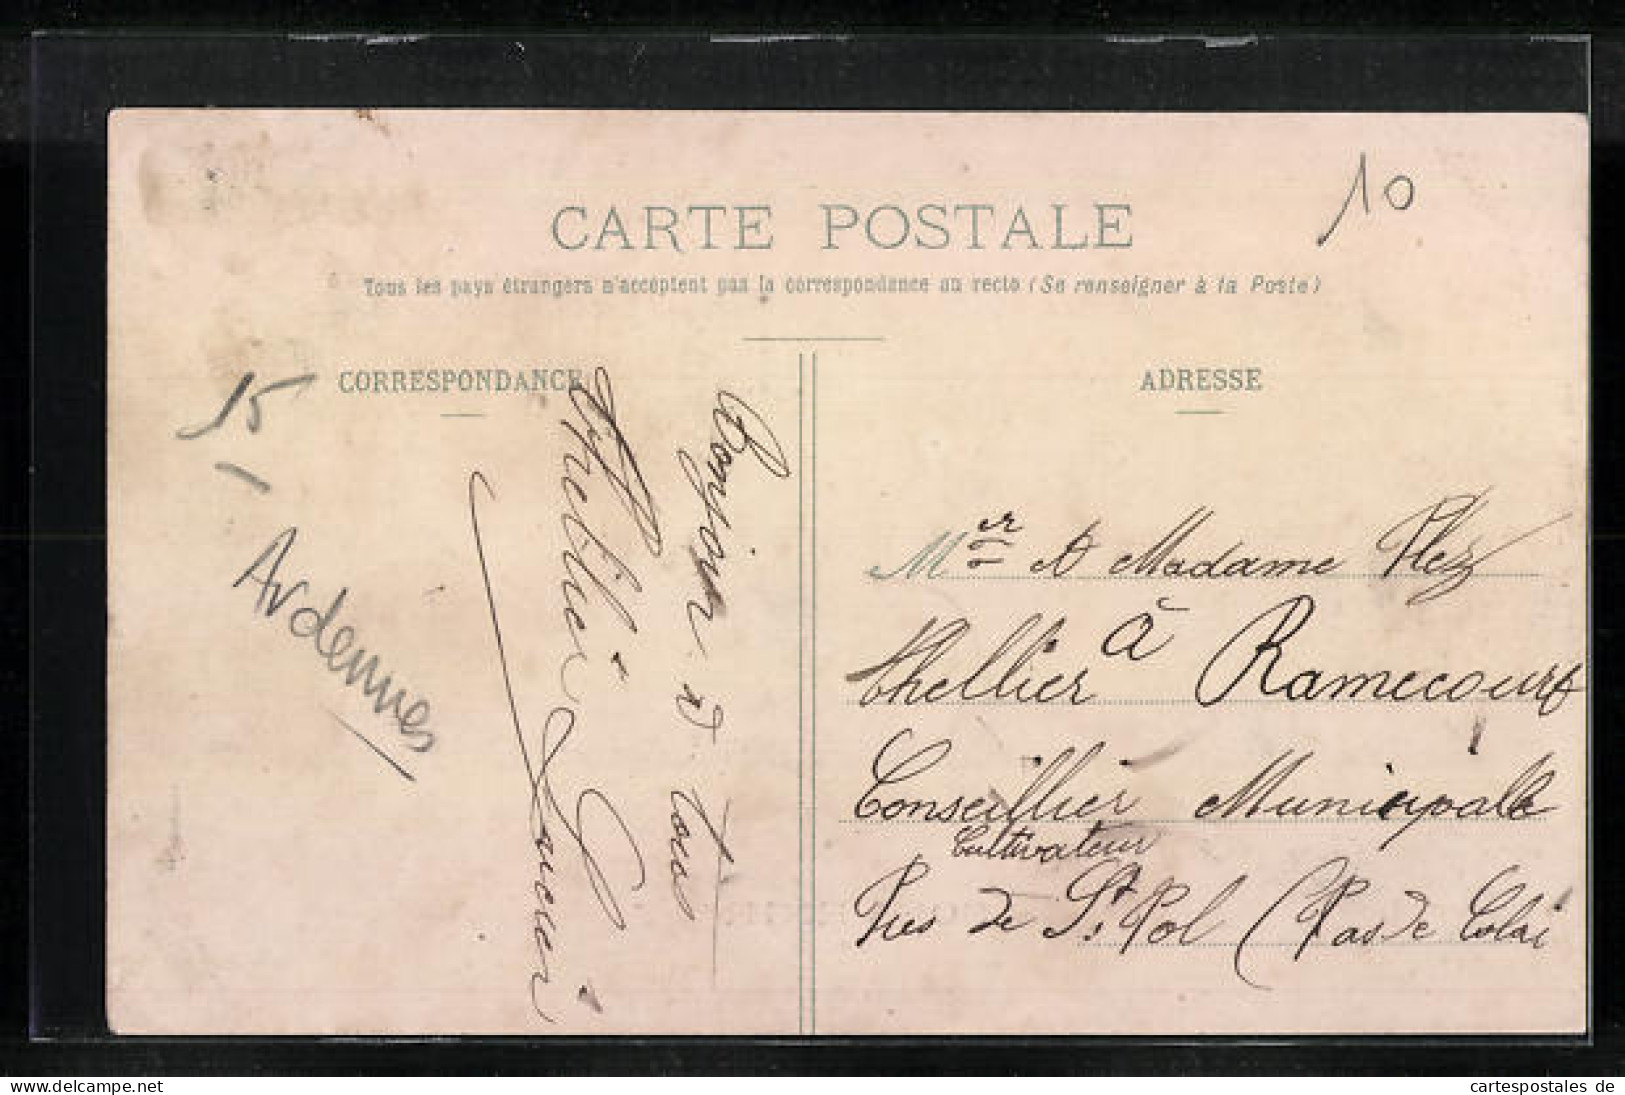 10
CARTE POSTALE
Tous les pays étrangers n'acceptent pas la correspondance au recto (Se renseigner à la Poste)
CORRESPONDANCE
15
Ardennes
Bonjour à tous
Thellier Lucien
ADRESSE
Mer et Madame Plez
thellier à Ramecourt
Conseillier Municipale
Cultivateur
Pres de St. Pol (Pas de Calai
Delcampe.net
cartespostales de